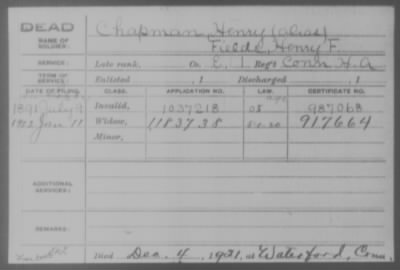 DEAD
NAME OF SOLDIER:
Chapman, Henry (alias)
Fields, Henry F.
SERVICE:
Late rank, Co. E, 1 Reg't Conn H.A
TERM OF SERVICE:
Enlisted , 1 Discharged , 1
DATE OF FILING. CLASS. APPLICATION NO. LAW. CERTIFICATE NO.
1891 July 9 Invalid, 1037218 987068
1922 Jan 11 Widow, 1183738 917664
Minor,
ADDITIONAL SERVICES:
REMARKS:
Died Dec. 4, 1921, at Waterford, Conn.